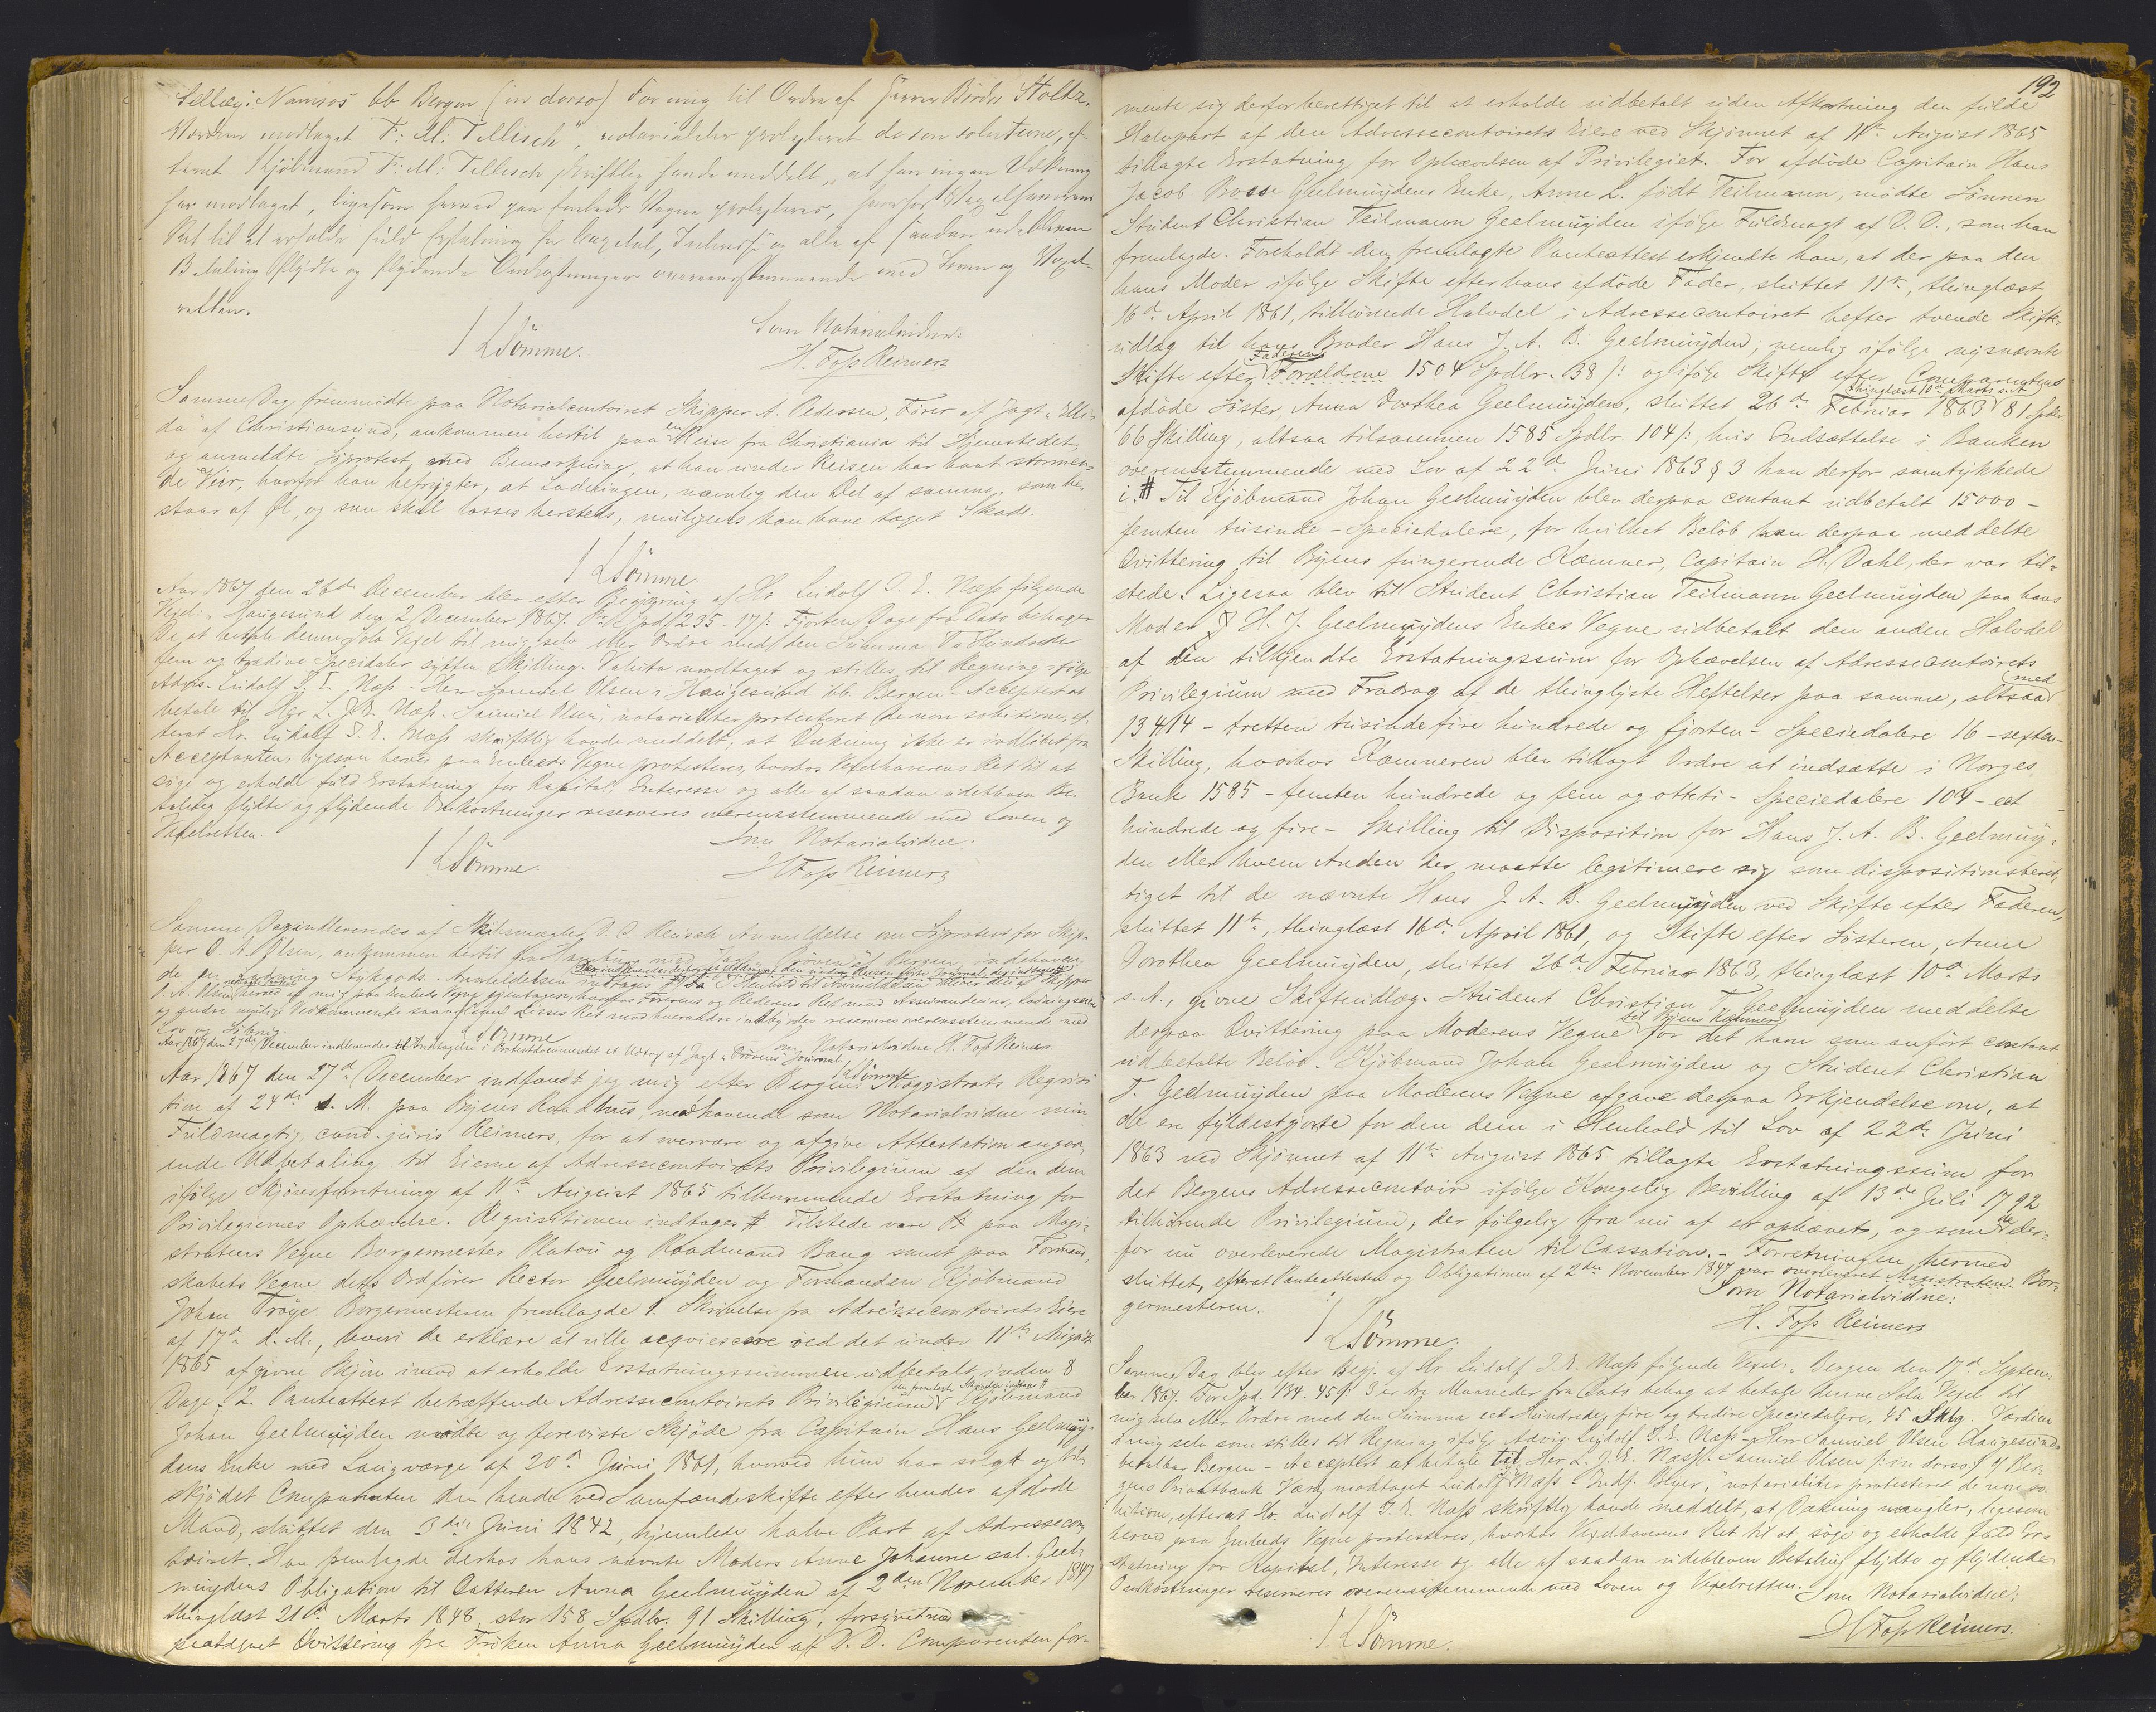 Tellisch Namsos bb Bergen (in dorso) For mig til Ordre af Herrer Brødr Stoltz.
Værdien modtaget F: M: Tellisch", notarialiter protesteret de non solutione, ef-
terat Kjøbmand F: M: Tellisch skriftlig havde meddelt, at han ingen Dækning
har modtaget, ligesom herved paa Embeds Vegne protesteres, hvorhos Vexelhaverens
Ret til at erholde fuld Erstatning for Capital, Interesse og alle af saadan udebleven
Betaling flydte og flydende Omkostninger overeensstemmende med Loven og Vexel-
retten.
Som Notarialvidne:
LSömme.
H. Foss Reimers
Samme Dag fremmödte paa Notarialcontoiret Skipper A. Pedersen, Förer af Jagt "Elli-
da" af Christiansund, ankommen hertil paa en Reise fra Christiania til Hjemstedet,
og anmeldte Söprotest med Bemærkning, at han under Reisen har havt stormen-
de Veir, hvorfor han befrygter, at Ladningen, navnlig den Del af samme, som be-
staar af Øl, og som skal losses hersteds, muligens kan have taget Skade.
LSömme
Aar 1867 den 26de December blev efter Begjæring af Hr. Ludolf J. E. Næss følgende
Vexel: "Haugesund den 2 December 1867. Pr Spd 235 - 17 /: Fjorten Dage fra Dato behager
De at betale denne Sola Vexel til mig selv eller Ordre med den Summa To Hundrede
fem og tredive Speciedaler sytten Skilling. Valuta modtaget og stilles til Regning ifølge
Advis. Ludolf J. E. Næss - Herr Samuel Olsen i Haugesund bb Bergen - Accepteret at
betale til Her L. J. E. Næss. Samuel Olsen", notarialiter protesteret de non solutione, ef-
terat Hr. Ludolf J. E. Næss skriftlig havde meddelt, at Dækning ikke er indløbet fra
Acceptanten, ligesom herved paa Embeds Vegne protesteres, hvorhos Vexelhaverens Ret til at
søge og erholde fuld Erstatning for Kapital, Interesse og alle af saadan udebleven Be-
taling flydte og flydende Omkostninger reserveres overensstemmende med Loven og
Vexelretten.
Som Notarialvidne.
LSömme.
HFoss Reimers
Samme Dag indleveredes af Skibsmægler D. C. Reusch Anmeldelse om Söprotest for Skip-
per O. A. Olsen, ankommen hertil fra Hamburg med Jagt "Pröven" af Bergen, indehaven-
de en Ladning Stykgods. Anmeldelsen indtages #. Da I Henhold til Anmeldelsen bliver den af Skipper
O. A. Olsen herved af mig paa Embeds Vegne gjentagen, hvorhos Førerens og Rederens Ret mod Assurandeurer, Ladningseiere
og andre mulige Vedkommende saavelsom disses Ret mod hverandre indbyrdes reserveres overensstemmende med
Lov og Sökrig.
LSömme
Som Notarialvidne H. Foss Reimers
Aar 1867 den 27de December indleveredes til Indtagelse i Protestdocumentet et Udtog af Jagt "Prövens" Journal.
LSömme
Aar 1867 den 27de December indfandt jeg mig efter Bergens Magistrats Reqvisi-
tion af 24de d. M. paa Byens Raadhus, medhavende som Notarialvidne min
Fuldmægtig, cand. juris Reimers, for at overvære og afgive Attestation angaa-
ende Udbetaling til Eierne af Adressecontoirets Privilegium af den dem
ifølge Skjönsforretning af 11te August 1865 tilkommende Erstatning for
Privilegiernes Ophævelse. Reqvisitionen indtages #. Tilstede vare paa Magi-
stratens Vegne Borgermester Platou og Raadmand Bang samt paa Formand-
skabets Vegne dets Ordförer Rector Geelmuyden og Formanden Kjöbmand
Johan Tröye. Borgermesteren fremlagde 1. Skrivelse fra Adressecontoirets Eiere
af 17de d. M., hvori de erklære at ville acqviescere ved det under 11te August
1865 afgivne Skjön imod at erholde Erstatningssummen udbetalt inden 8
Dage. 2. Panteattest betræffende Adressecontoirets Privilegium. Kjöbmand
Johan Geelmuyden mödte og foreviste Skjöde fra Capitain Hans Geelmuy-
dens Enke med Laugværge af 20de Juni 1861, hvorved hun har solgt og til-
skjödet Comparenten den hende ved Samfrændeskifte efter hendes afdöde
Mand, sluttet den 3die Juni 1842, hjemlede halve Part af Adressecon-
toiret. Han fremlagde derhos hans nævnte Moders Anne Johanne sal. Geel-
muydens Obligation til Datteren Anna Geelmuyden af 2den November 1847
thinglæst 21de Marts 1848, stor 158 Spdlr. 91 Skilling, forsynet med
paategnet Qvittering fra Fröken Anna Geelmuyden af D. D. Comparenten for-
192
mente sig derfor berettiget til at erholde udbetalt uden Afkortning den fulde
Halvpart af den Adressecontoirets Eiere ved Skjönnet af 11te August 1865
tillagte Erstatning for Ophævelsen af Privilegiet. For afdöde Capitain Hans
Jacob Bosse Geelmuydens Enke, Anne L. født Teilmann, mödte Sönnen
Student Christian Teilmann Geelmuyden ifølge Fuldmagt af D. D., som han
fremlagde. Foreholdt den fremlagte Panteattest erkjendte han, at der paa den
hans Moder ifølge Skifte efter hans afdöde Fader, sluttet 11te, thinglæst
16de April 1861, tilhörende Halvdel i Adressecontoiret hefter tvende Skifte-
udlæg til hans Broder Hans J. A. B. Geelmuyden, nemlig ifølge nysnævnte
Skifte efter Faderen Forældrene 1504 Spdlr. 38 /: og ifølge Skifte efter Comparentens
afdöde Söster, Anna Dorthea Geelmuyden, sluttet 26de Februar 1863 thinglæst 10de Marts s. A. 81 Spdlr.
66 Skilling, altsaa tilsammen 1585 Spdlr. 104 /:, hvis Indsættelse i Banken
overensstemmende med Lov af 22de Juni 1863 § 3 han derfor samtykkede
i. # Til Kjöbmand Johan Geelmuyden blev derpaa contant udbetalt 15000 -
femten tusinde - Speciedalere, for hvilket Belöb han derpaa meddelte
Qvittering til Byens fungerende Kæmner, Capitain H. Dahl, der var til-
stede. Ligesaa blev til Student Christian Teilmann Geelmuyden paa hans
Moder H. J. Geelmuydens Enkes Vegne udbetalt den anden Halvdel
af den tilkjendte Erstatningssum for Ophævelsen af Adressecontoirets
Privilegium med Fradrag af de thinglyste Heftelser paa samme, altsaa med
13414 - tretten tusinde fire hundrede og fjorten - Speciedalere 16 - sexten -
Skilling, hvorhos Kæmneren blev tillagt Ordre at indsætte i Norges
Bank 1585 - femten hundrede og fem og otteti - Speciedalere 104 - eet
hundrede og fire - Skilling til Disposition for Hans J. A. B. Geelmuy-
den eller hvem Anden der maatte legitimere sig som dispositionsberet-
tiget til de nævnte Hans J. A. B. Geelmuyden ved Skifte efter Faderen,
sluttet 11te, thinglæst 16de April 1861, og Skifte efter Sösteren, Anne
Dorothea Geelmuyden, sluttet 26de Februar 1863, thinglæst 10de Marts
s. A., givne Skifteudlæg. Student Christian T. Geelmuyden meddelse
derpaa Qvittering paa Moderens Vegne til Byens Kæmner for det ham som anfört contant
udbetalte Belöb. Kjöbmand Johan Geelmuyden og Student Christian
T. Geelmuyden paa Moderens Vegne afgave derpaa Erkjendelse om, at
de ere fyldestgjorte for den dem i Henhold til Lov af 22de Juni
1863 ved Skjönnet af 11te August 1865 tillagte Erstatningssum for
det Bergens Adressecontoir ifølge Kongelig Bevilling af 13de Juli 1792
tilhörende Privilegium, der følgelig fra nu af er ophævet, og som de der-
for nu overleverede Magistraten til Cassation. - Forretningen hermed
sluttet, efterat Panteattesten og Obligationen af 2den November 1847 var overleveret Magistraten Bor-
germesteren.
Som Notarialvidne:
LSömme.
H. Foss Reimers
Samme Dag blev efter Begj. af Hr. Ludolf J. E. Næss følgende Vexel: "Bergen den 17de Septem-
ber 1867. For Spd. 134. 45 /: 3 er tre Maaneder fra Dato behag at betale denne Sola Vexel til
mig selv eller Ordre med den Summa eet Hundrede, fire og tredive Speciedalere, 45 Sklg. Værdien
i mig selv som stilles til Regning ifølge Advis. Ludolf J. E. Næss - Herr Samuel Olsen Haugesund
betalbar Bergen - Accepteret at betale til Her L. J. E. Næss. Samuel Olsen /: in dorso :/ Ber-
gens Privatbank Værdi modtaget Ludolf J. E. Næss - Indf. Beyer," notarialiter protesteret de non so-
lutione, efterat Hr. Ludolf J. E. Næss skriftlig havde meddelt, at Dækning mangler, ligesom
herved paa Embeds Vegne protesteres, hvorhos Vexelhaverens Ret til at søge og erholde fuld Er-
statning for Kapital, Interesse og alle af saadan udebleven Betaling flydte og flydende
Omkostninger reserveres overensstemmende med Loven og Vexelretten.
Som Notarialvidne:
LSömme.
HFoss Reimers.